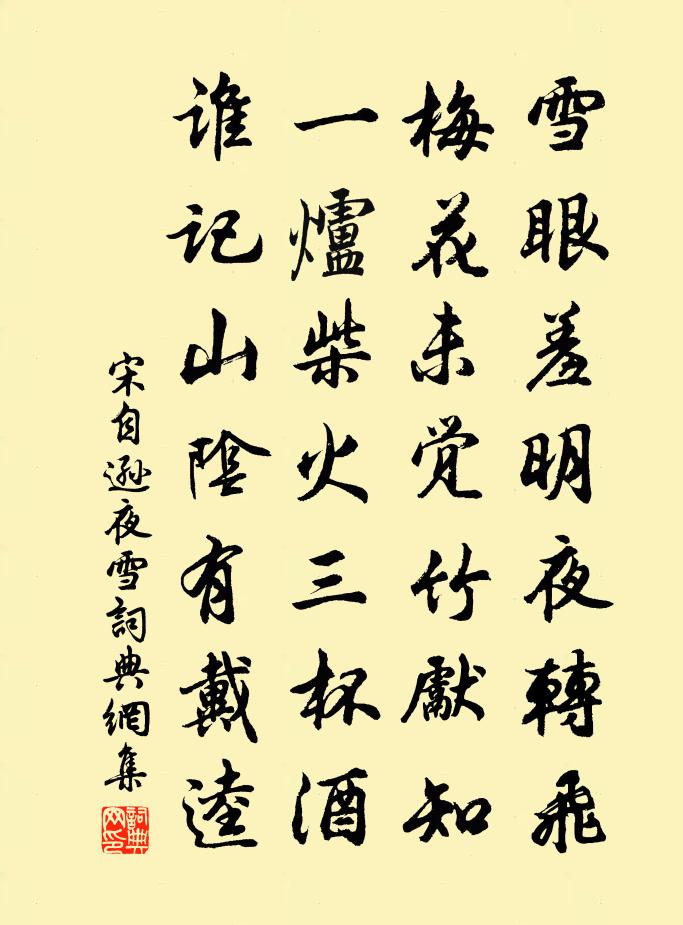 雪眼羞明夜轉飛
梅花未觉竹獻知
一爐柴火三杯酒
谁记山陰有戴逵
宋自遜夜雪詞典網集
詞典网印